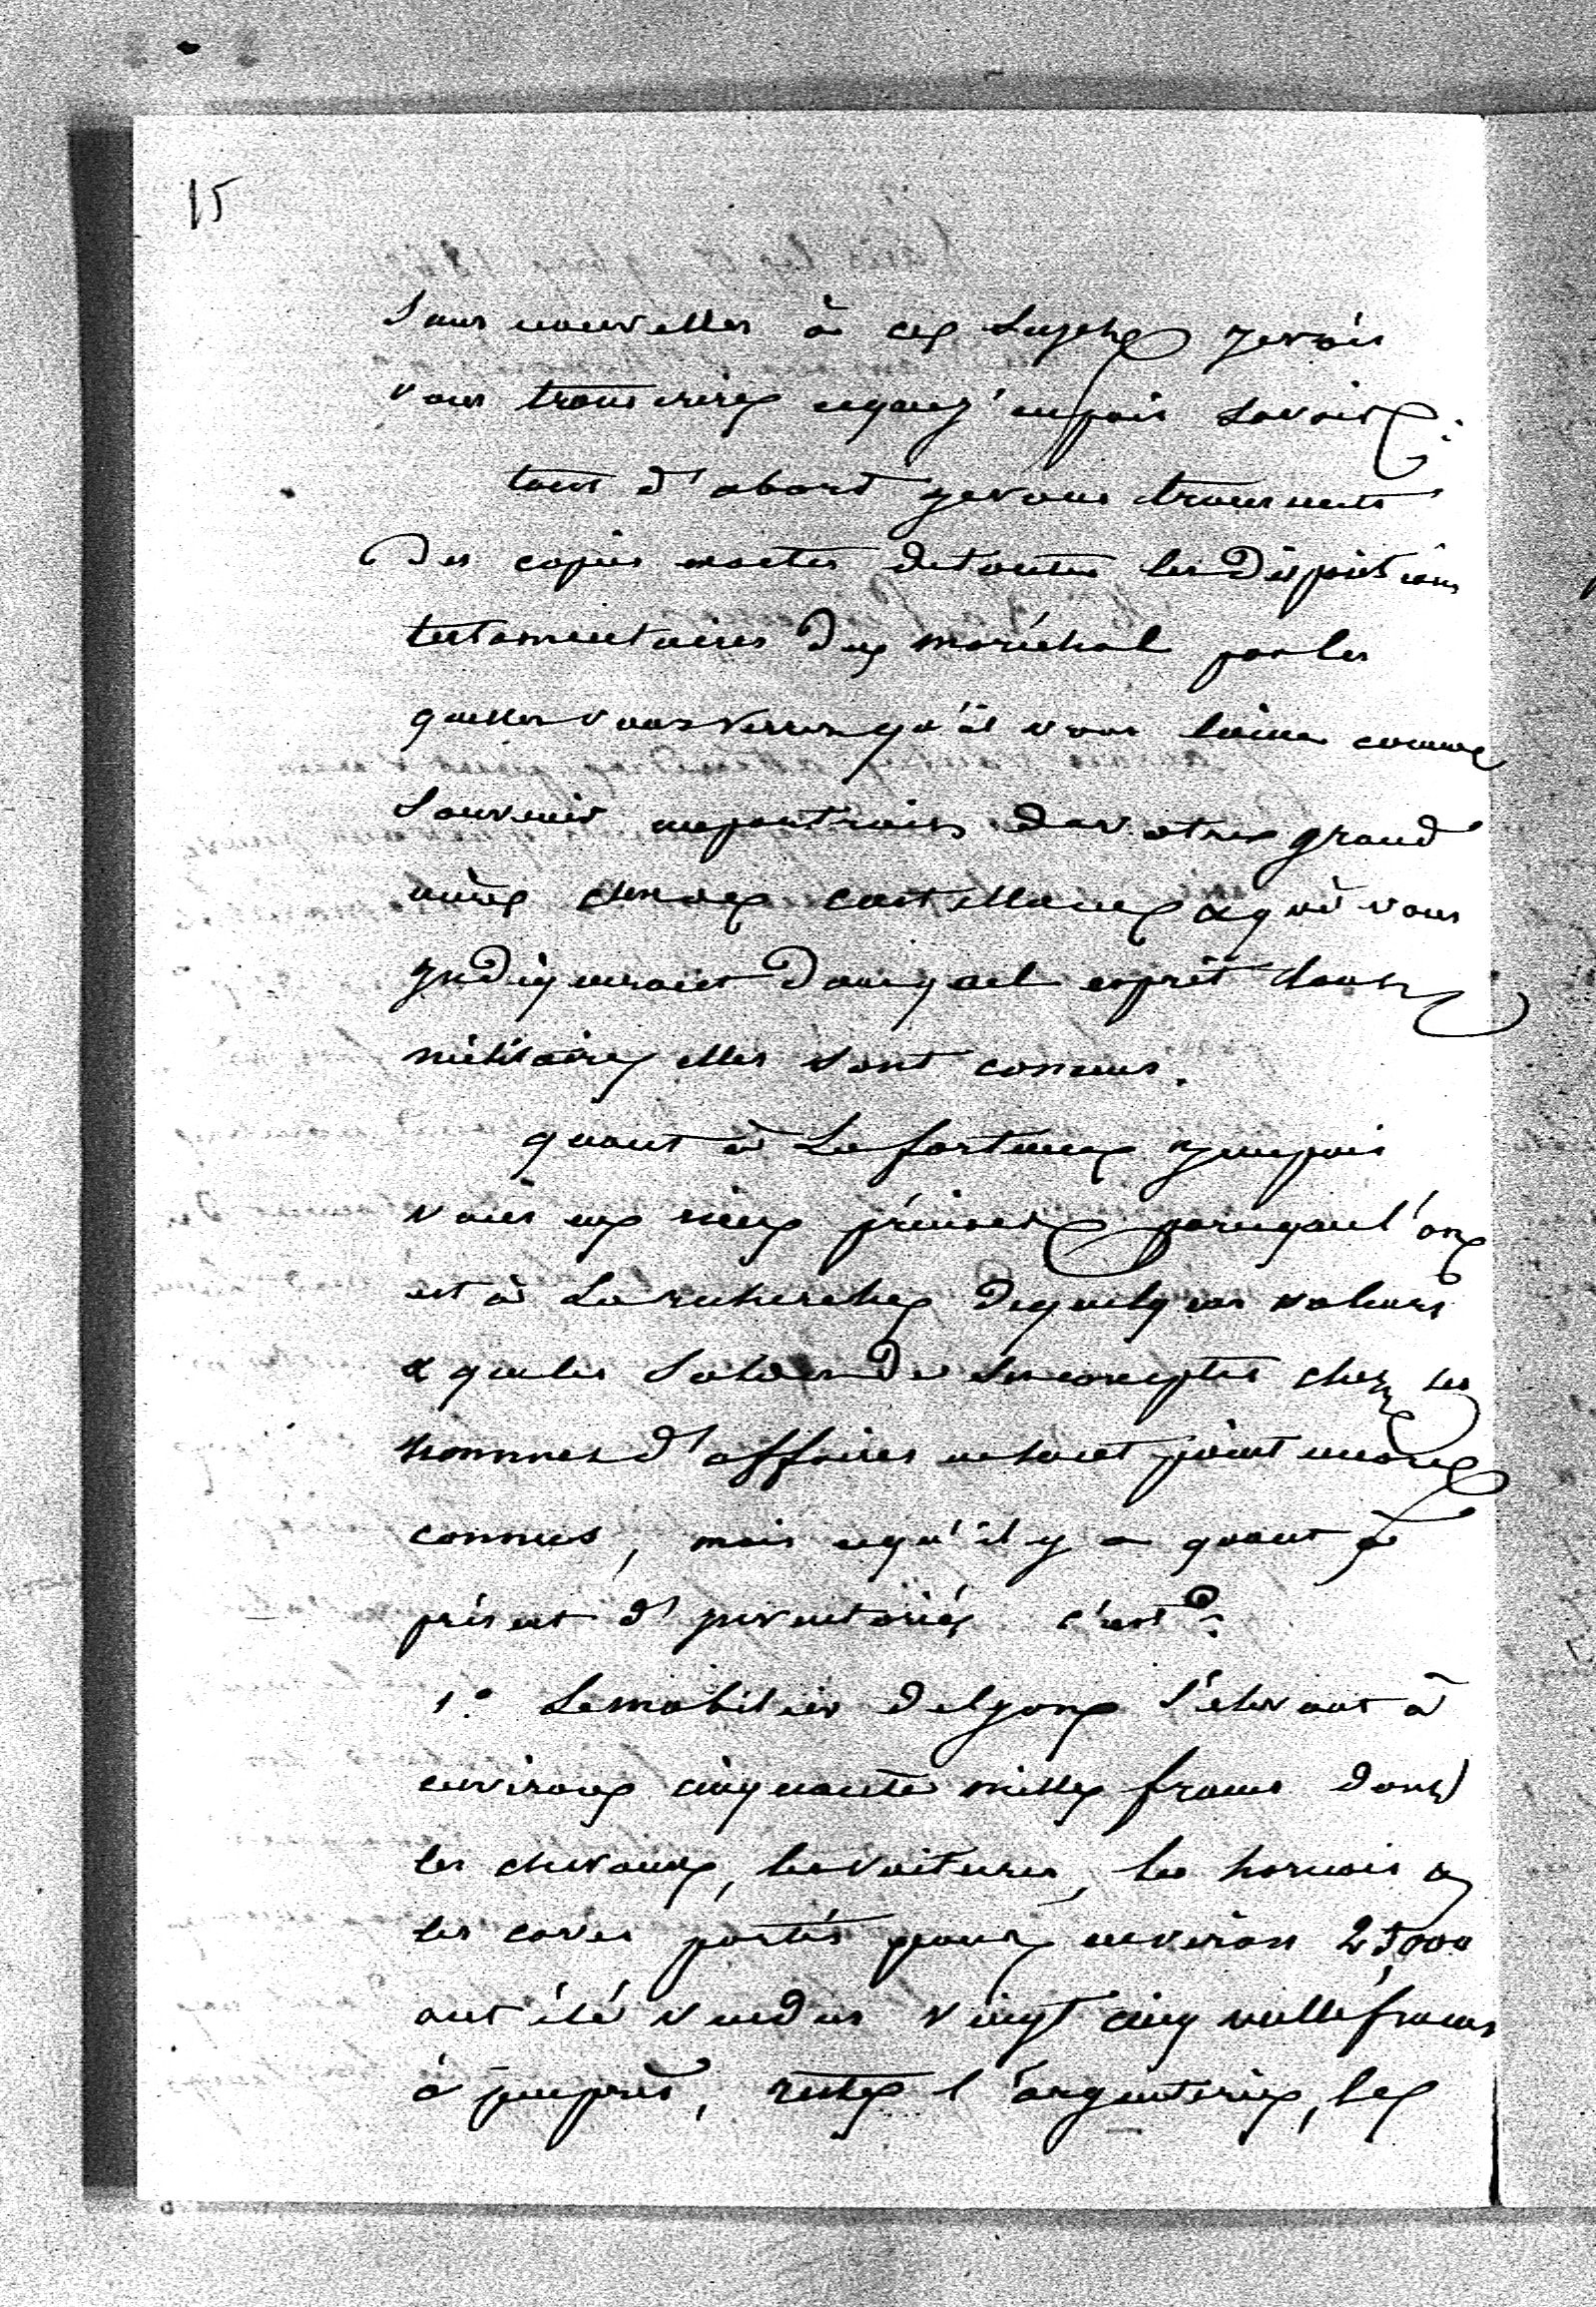 15
sans nouvelles à ce sujet je vais
vous transcrire ce que j'en puis savoir:
tout d'abord je vous transmets
des copies exactes de toutes les dispositions
testamentaires du maréchal par les
quelles vous verrez qu'il vous laisse comme
souvenir un portrait de votre grand
mère Castellane & qui vous
indiqueront dans quel esprit tout
militaire elles sont conçues.
quant à la fortune je ne puis
vous en rien préciser parceque l'on
est à la recherche de quelques valeurs
& que les soldes de ses comptes chez ses
hommes d'affaires ne sont point encore
connus, mais ce qu'il y a quant à
présent d'inventorié c'est:
1º le mobilier de Lyon s'élevant à
environ cinquante mille francs dont
les chevaux, les voitures, les harnois &
les caves portés pour environ 25,000
ont été vendus vingt cinq mille francs
à peu près, reste l'argenterie, le